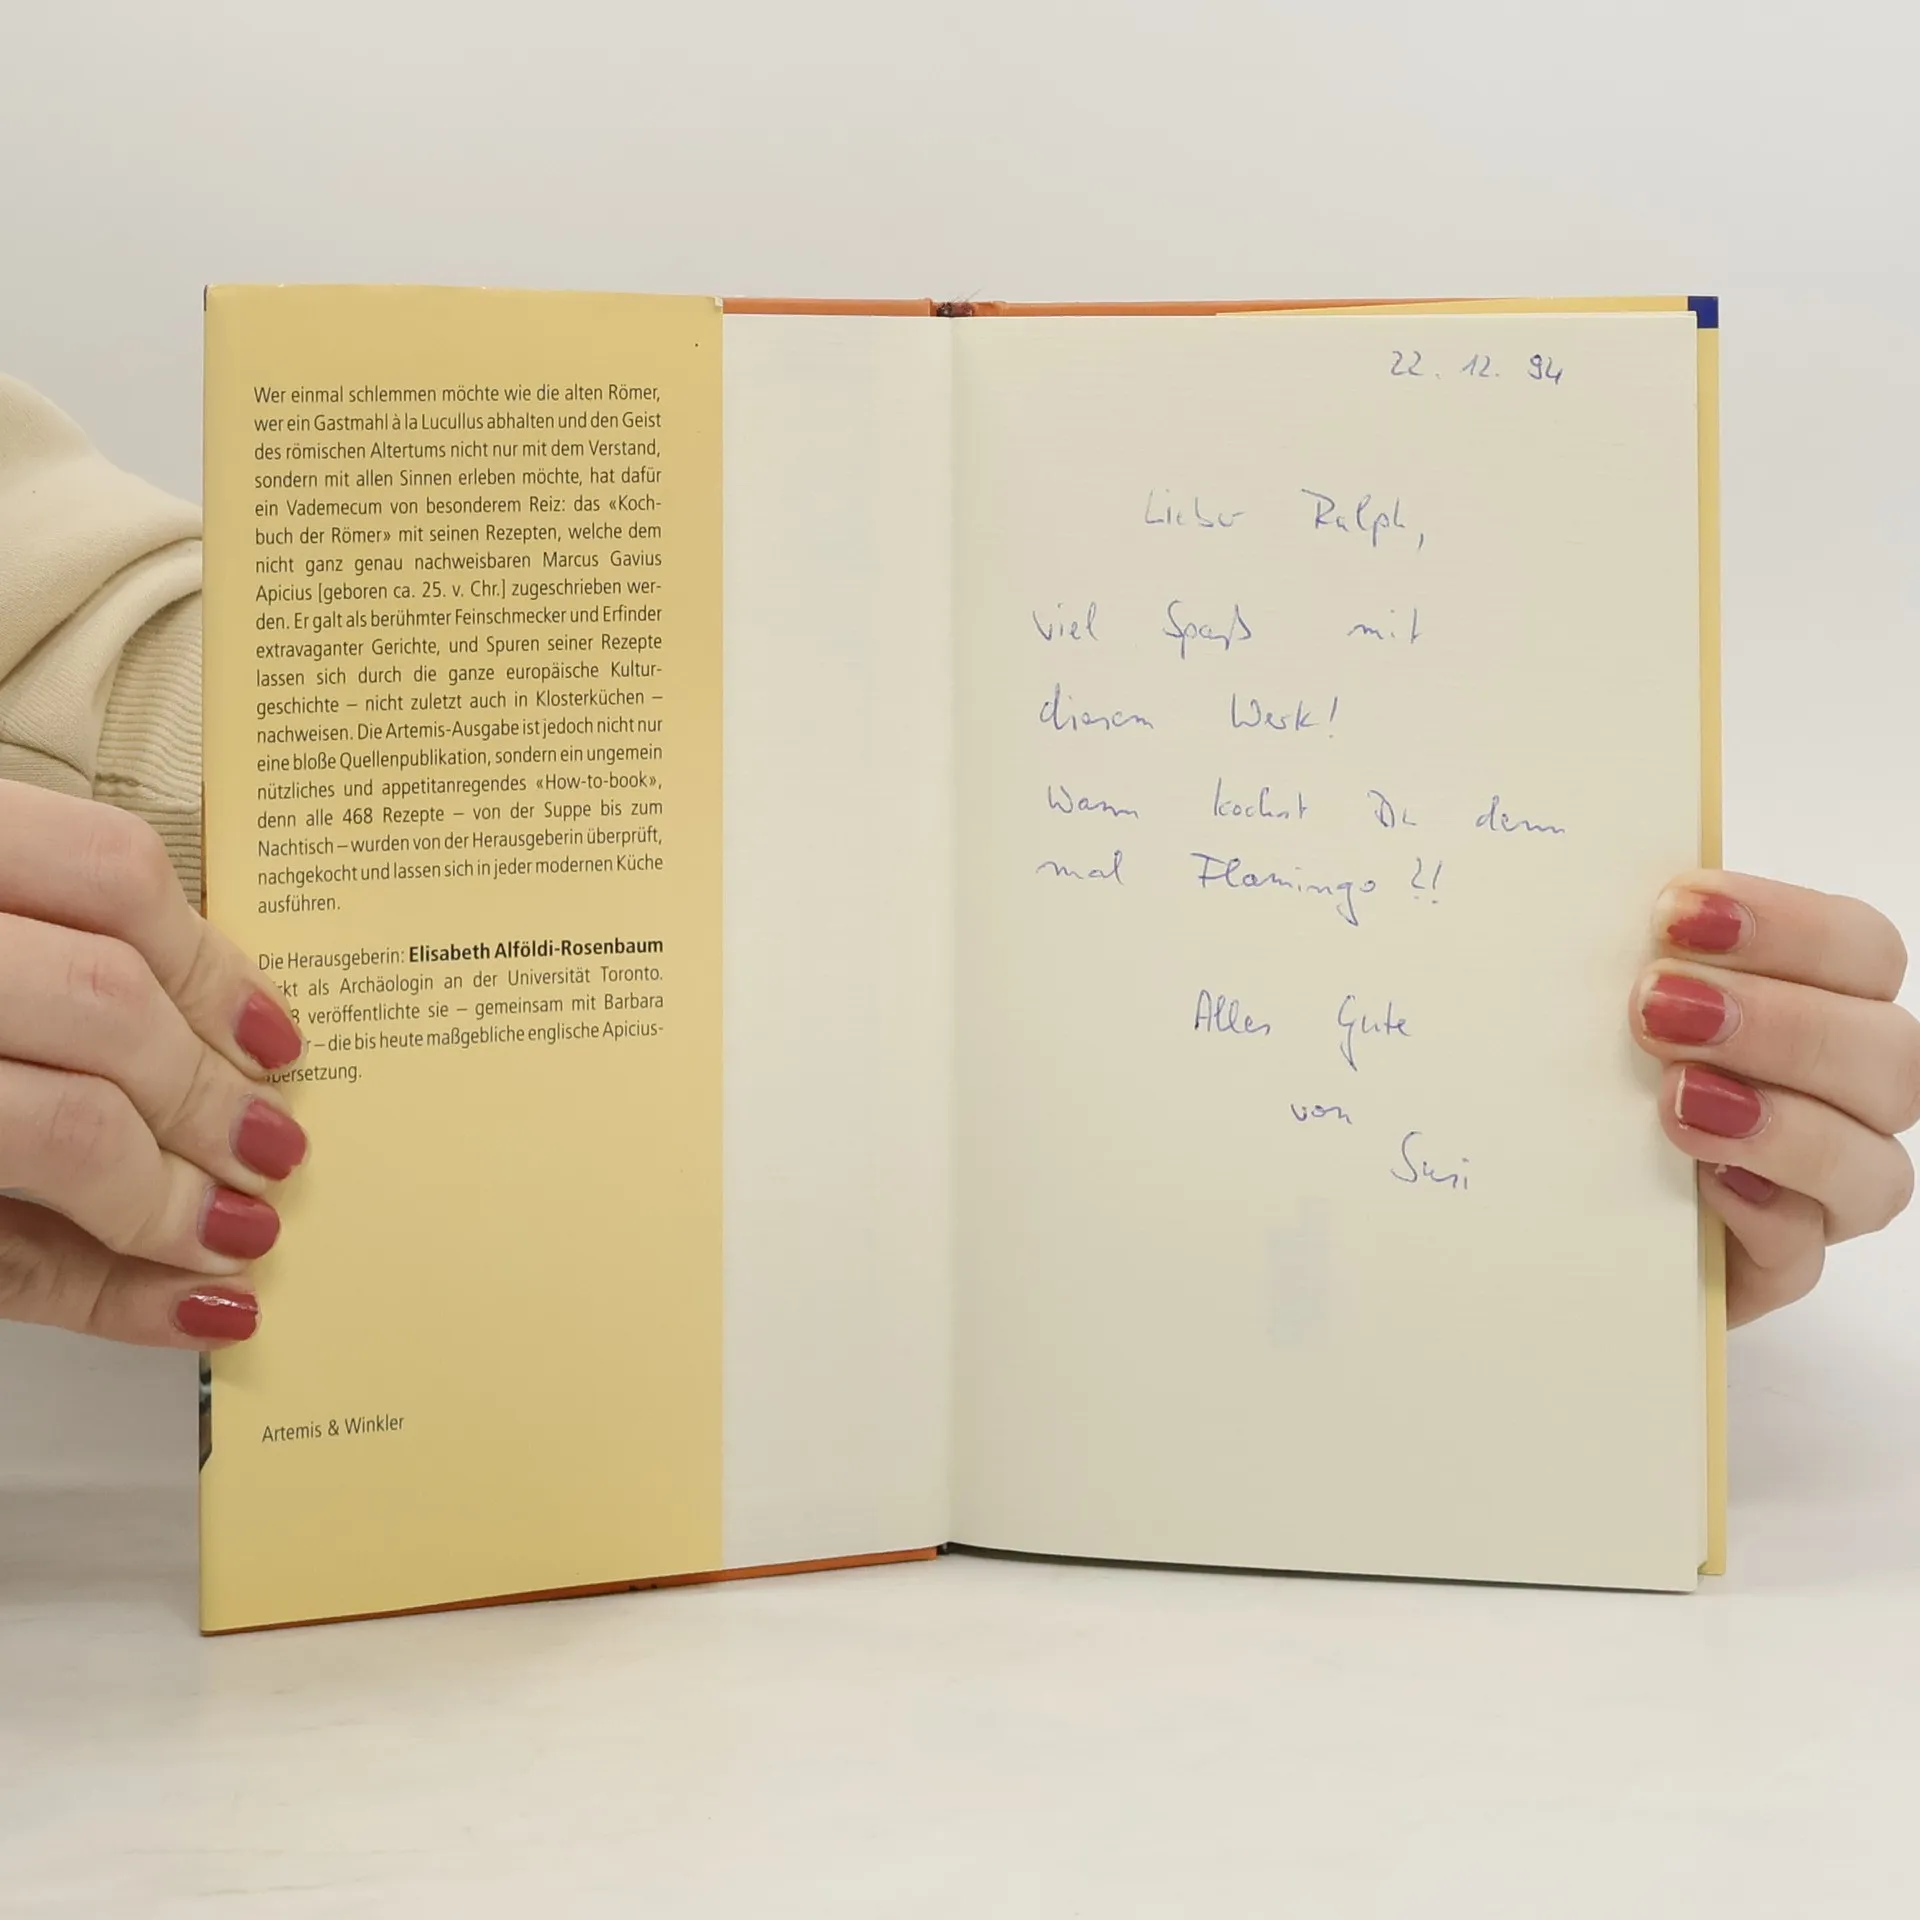 Wer einmal schlemmen möchte wie die alten Römer,
wer ein Gastmahl à la Lucullus abhalten und den Geist
des römischen Altertums nicht nur mit dem Verstand,
sondern mit allen Sinnen erleben möchte, hat dafür
ein Vademecum von besonderem Reiz: das «Koch-
buch der Römer» mit seinen Rezepten, welche dem
nicht ganz genau nachweisbaren Marcus Gavius
Apicius [geboren ca. 25. v. Chr.] zugeschrieben wer-
den. Er galt als berühmter Feinschmecker und Erfinder
extravaganter Gerichte, und Spuren seiner Rezepte
lassen sich durch die ganze europäische Kultur-
geschichte – nicht zuletzt auch in Klosterküchen –
nachweisen. Die Artemis-Ausgabe ist jedoch nicht nur
eine bloße Quellenpublikation, sondern ein ungemein
nützliches und appetitanregendes «How-to-book»,
denn alle 468 Rezepte – von der Suppe bis zum
Nachtisch – wurden von der Herausgeberin überprüft,
nachgekocht und lassen sich in jeder modernen Küche
ausführen.
Die Herausgeberin: Elisabeth Alföldi-Rosenbaum
als Archäologin an der Universität Toronto.
veröffentlichte sie – gemeinsam mit Barbara
– die bis heute maßgebliche englische Apicius-
Artemis & Winkler
22. 12. 94
Lieber Ralph,
viel Spaß mit
diesem Werk!
Wann kochst Du denn
mal Flamingo ?!
Alles Gute
von
Susi